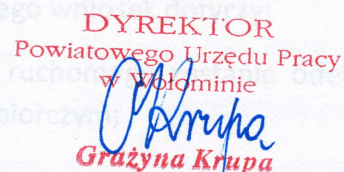 ego wniosek dotyczy:
DYREKTOR
Powiatowego Urzędu Pracy
w Wołominie
GKrupa
Grażyna Krupa